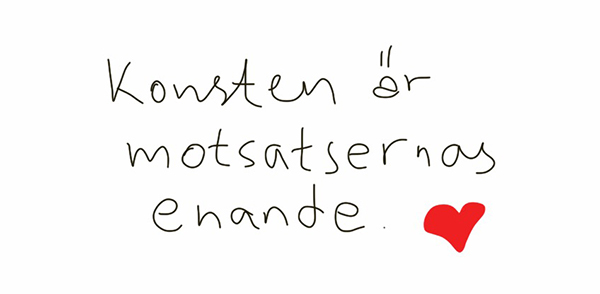 Konsten är
motsatsernas
enande.